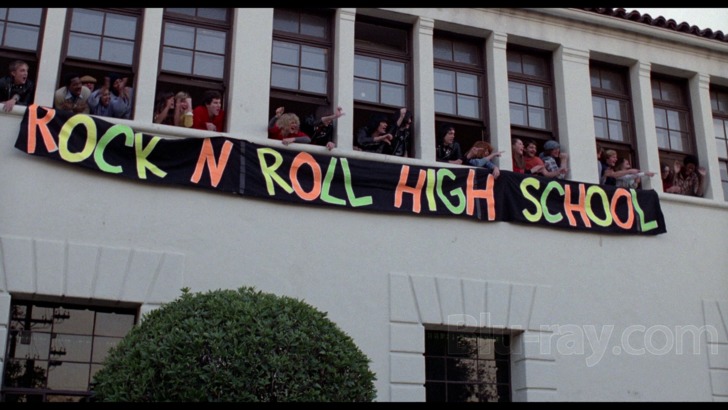 ROCK N ROLL HIGH SCHOOL
Blu-ray.com